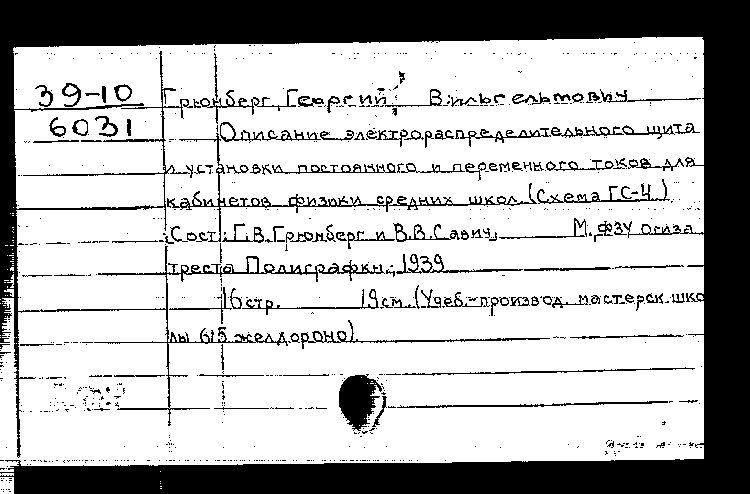 39-10
6031
Грюнберг, Георгий, Вильгельмович
Описание электрораспределительного щита
и установки постоянного и переменного токов для
кабинетов физики средних школ. (Схема ГС-4)
Сост.: Г.В. Грюнберг и В.В. Савич. М., ФЗУ Огиза
треста Полиграфкн., 1939
16 стр. 19 см. (Учеб.-производ. мастерск. шко
лы 615 желдороно).